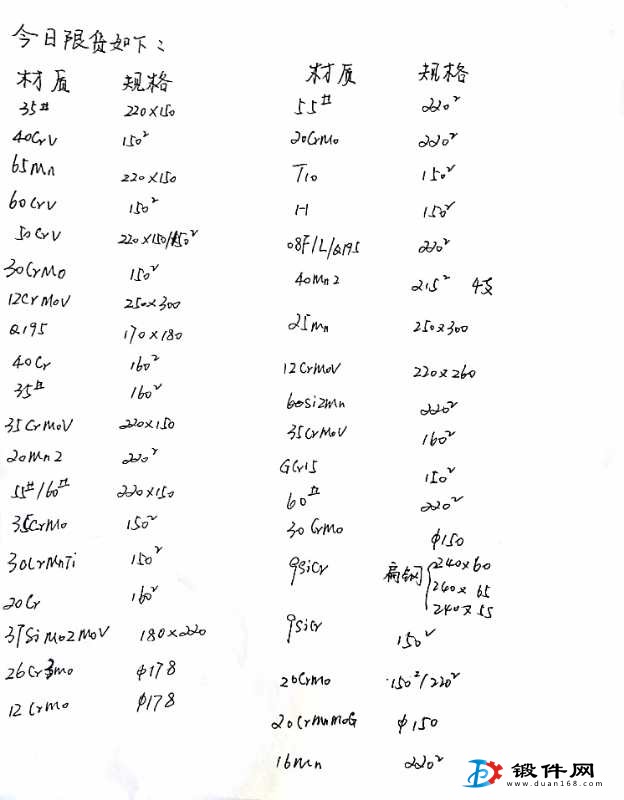 今日限货如下：
材质 规格
35# 220×150
40CrV 150²
65Mn 220×150
60CrV 150²
50CrV 220×150/150²
30CrMo 150²
12CrMoV 250×300
Q195 170×180
40Cr 160²
35# 160²
35CrMoV 220×150
20Mn2 220²
55#/60# 220×150
35CrMo 150²
30CrMnTi 150²
20Cr 160²
37SiMn2MoV 180×220
26Cr3Mo φ178
12CrMo φ178
材质 规格
55# 220²
20CrMo 220²
T10 150²
H 150²
08F/L/Q195 220²
40Mn2 215² 4支
25Mn 250×300
12CrMoV 220×260
60Si2Mn 220²
35CrMoV 160²
GCr15 150²
60# 220²
30CrMo φ150
9SiCr 扁钢 240×60
240×65
240×55
9SiCr 150²
20CrMo 150²/220²
20CrMnMoG φ150
16Mn 220²
锻件网
www.duan168.com